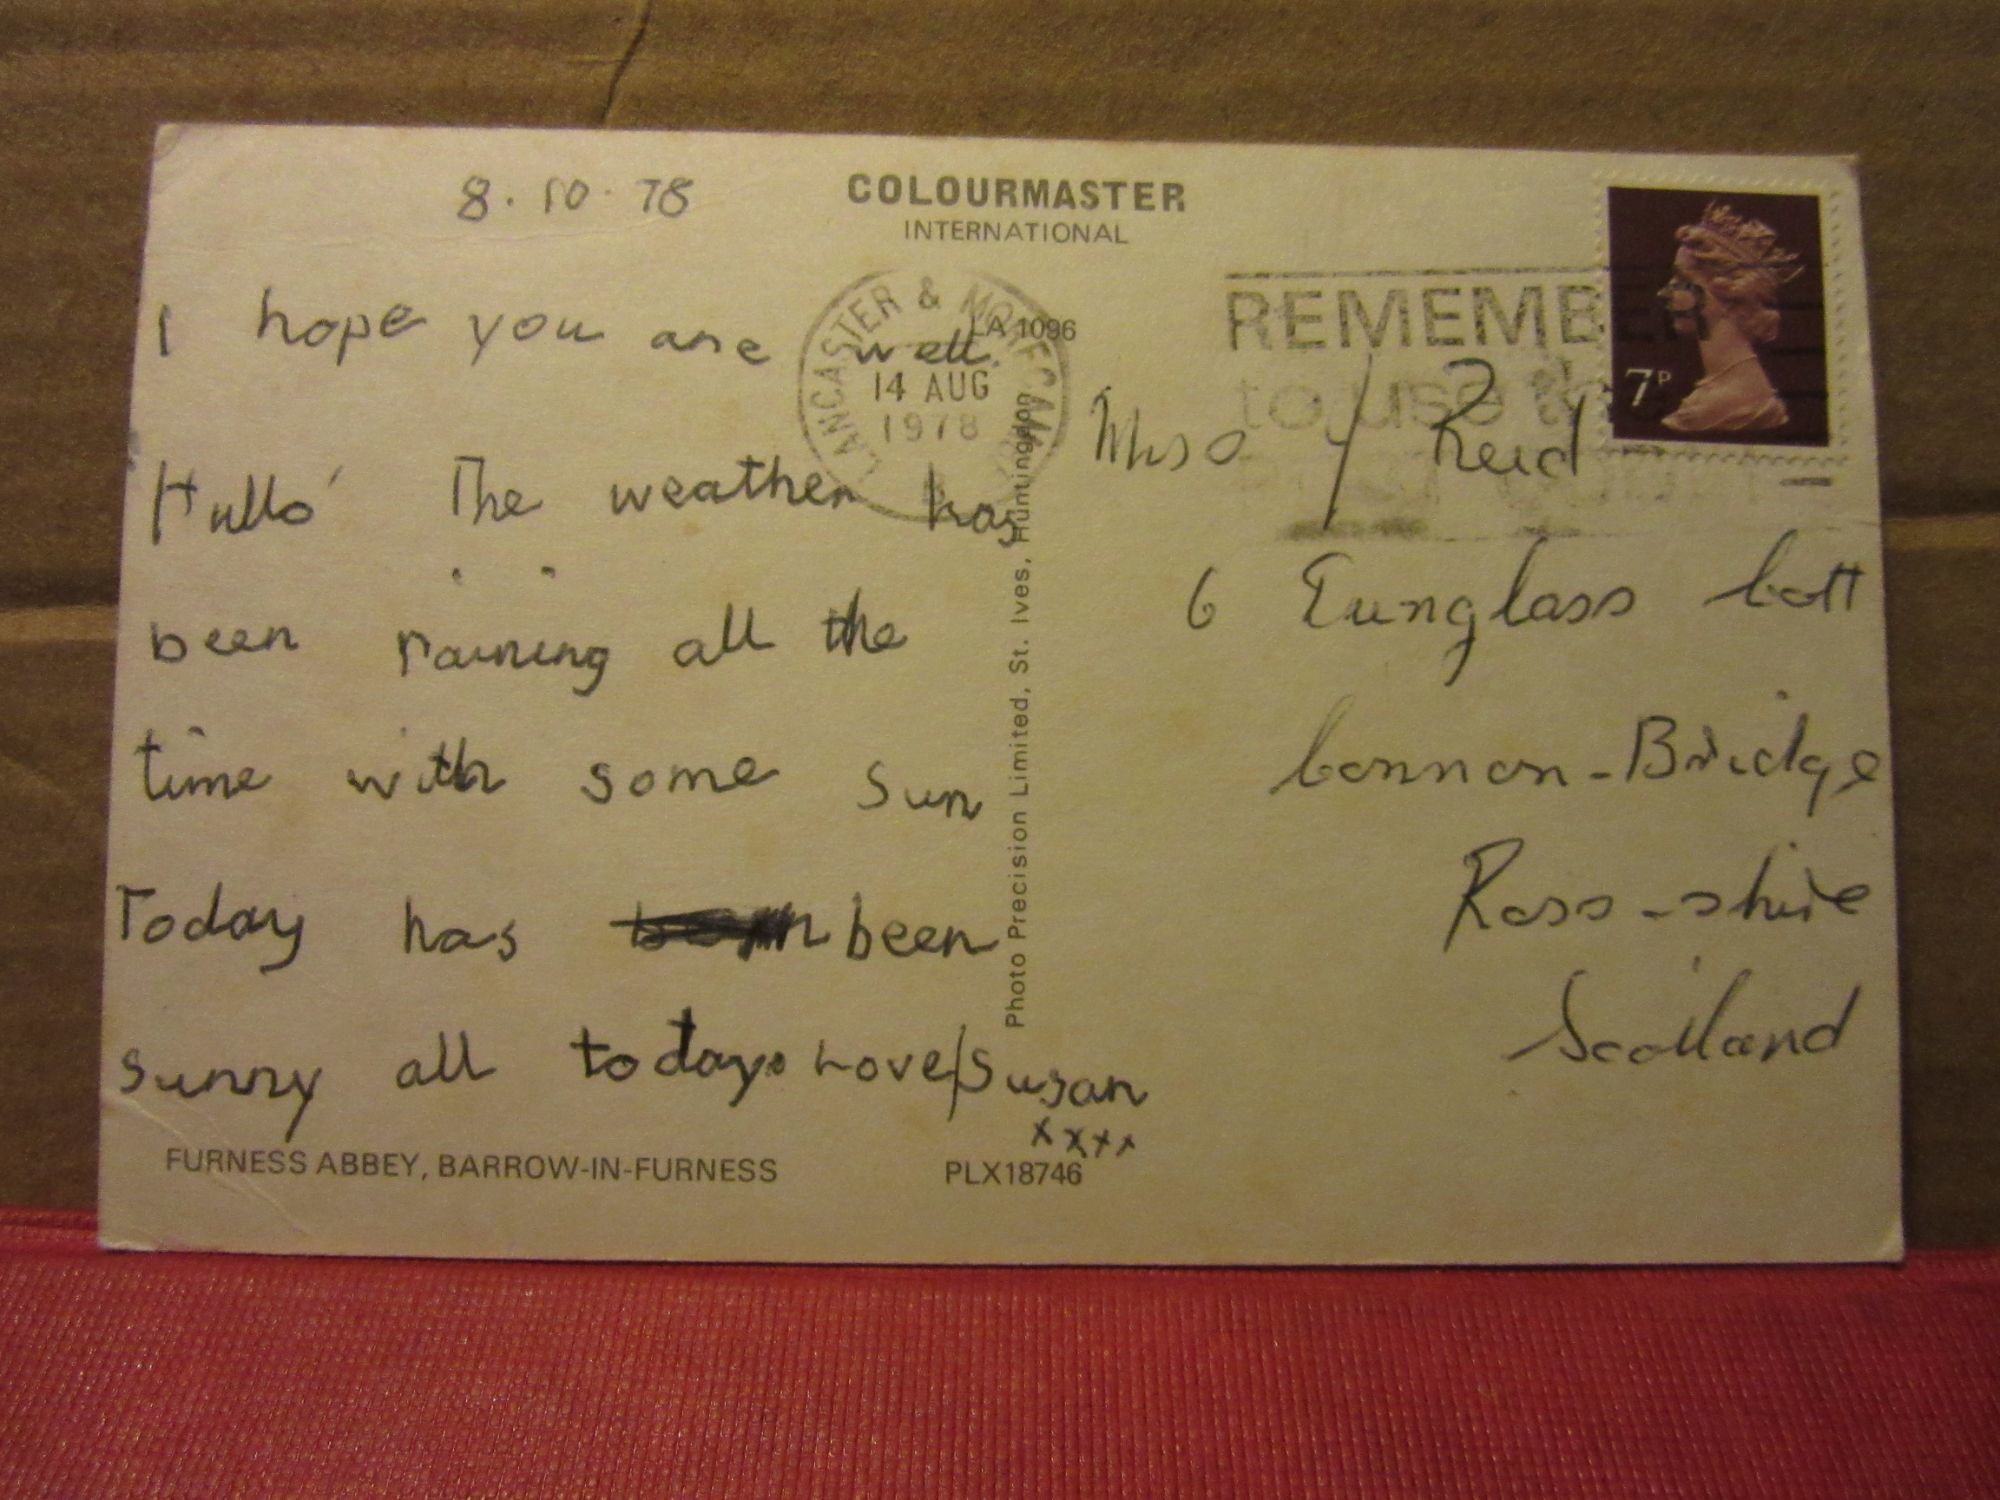 8.10.78
COLOURMASTER
INTERNATIONAL
I hope you are well.
LA 1096
LANCASTER & MORECAMBE
14 AUG
1978
Hullo The weather has
been raining all the
time with some sun
Today has been
sunny all today. Love/Susan
xxxx
FURNESS ABBEY, BARROW-IN-FURNESS
PLX18746
Photo Precision Limited, St. Ives, Huntingdon
REMEMBER
to use
7P
Miss J Reid
6 Cott
Connon-Bridge
Ross-shire
Scotland